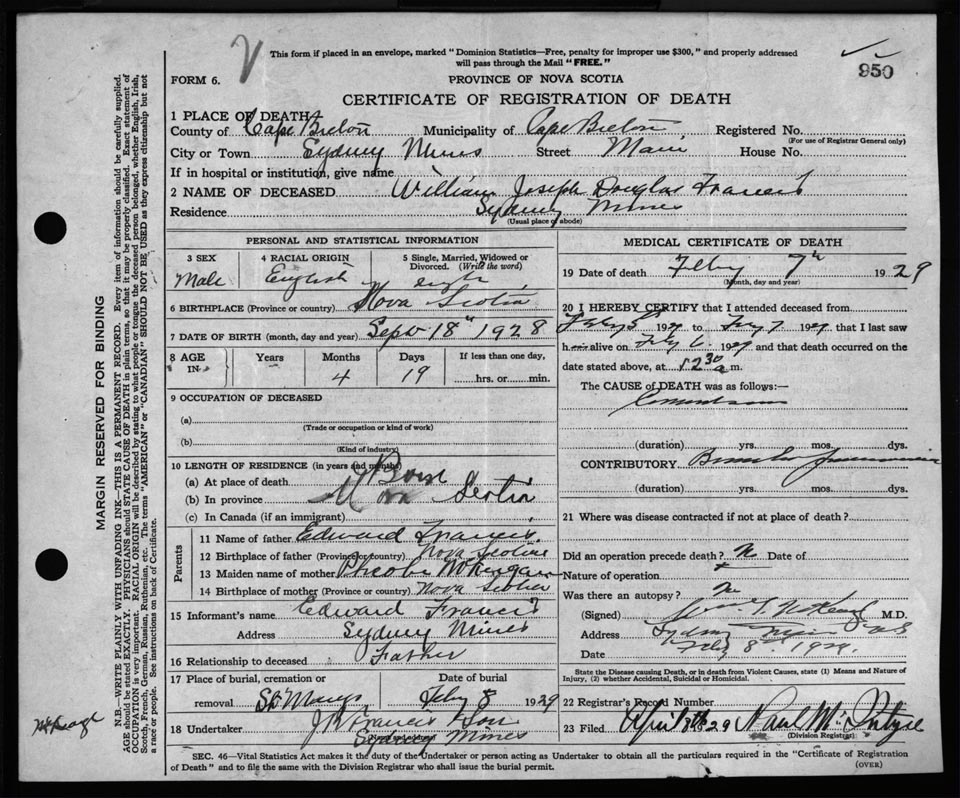 This form if placed in an envelope, marked "Dominion Statistics—Free, penalty for improper use $300," and properly addressed
will pass through the Mail "FREE."
950
FORM 6.
PROVINCE OF NOVA SCOTIA
CERTIFICATE OF REGISTRATION OF DEATH
1 PLACE OF DEATH
County of Cape Breton Municipality of Cape Breton Registered No.
(For use of Registrar General only)
City or Town Sydney Mines Street Main House No.
If in hospital or institution, give name
2 NAME OF DECEASED William Joseph Douglas Francis
Residence Sydney Mines
(Usual place of abode)
PERSONAL AND STATISTICAL INFORMATION
3 SEX
Male
4 RACIAL ORIGIN
English
5 Single, Married, Widowed or
Divorced. (Write the word)
6 BIRTHPLACE (Province or country) Nova Scotia
7 DATE OF BIRTH (month, day and year) Sept 18th 1928
8 AGE
IN
Years Months Days If less than one day,
4 19 hrs. or min.
9 OCCUPATION OF DECEASED
(a)
(Trade or occupation or kind of work)
(b)
(Kind of industry)
10 LENGTH OF RESIDENCE (in years and months)
(a) At place of death Born
(b) In province Nova Scotia
(c) In Canada (if an immigrant)
Parents
11 Name of father Edward Francis
12 Birthplace of father (Province or country) Nova Scotia
13 Maiden name of mother Pheobe
14 Birthplace of mother (Province or country) Nova Scotia
15 Informant's name Edward Francis
Address Sydney Mines
16 Relationship to deceased Father
17 Place of burial, cremation or
removal St. Marys
Date of burial
Feby 8 1929
18 Undertaker J. R. Francis & Son
(Print or write)
Sydney Mines
MEDICAL CERTIFICATE OF DEATH
19 Date of death Feby 7th 1929
(Month, day and year)
20 I HEREBY CERTIFY that I attended deceased from
Feby 5 1929 to Feby 7 1929 that I last saw
h alive on Feby 6 1929 and that death occurred on the
date stated above, at 12 30 a m.
The CAUSE OF DEATH was as follows:—
Convulsions
(duration) yrs. mos. dys.
CONTRIBUTORY Broncho Pneumonia
(duration) yrs. mos. dys.
21 Where was disease contracted if not at place of death?
Did an operation precede death? No Date of
Nature of operation
Was there an autopsy? No
(Signed) M.D.
Address Sydney Mines N.S.
Date Feby 8th 1929.
State the Disease causing Death, or in death from Violent Causes, state (1) Means and Nature of
Injury, (2) whether Accidental, Suicidal or Homicidal.
22 Registrar's Record Number
23 Filed April 8th 29 Paul McIntyre
(Division Registrar)
SEC. 46—Vital Statistics Act makes it the duty of the Undertaker or person acting as Undertaker to obtain all the particulars required in the "Certificate of Registration
of Death" and to file the same with the Division Registrar who shall issue the burial permit.
(OVER)
MARGIN RESERVED FOR BINDING
N.B.—WRITE PLAINLY WITH UNFADING INK—THIS IS A PERMANENT RECORD. Every item of information should be carefully supplied.
AGE should be stated EXACTLY. PHYSICIANS should STATE CAUSE OF DEATH in plain terms, so that it may be properly classified. Exact statement of
OCCUPATION is very important. RACIAL ORIGIN will be described by stating to what people or tongue the deceased person belonged, whether English, Irish,
Scotch, French, German, Russian, Ruthenian, etc. The terms "AMERICAN" or "CANADIAN" SHOULD NOT BE USED as they express citizenship but not
a race or people. See instructions on back of Certificate.